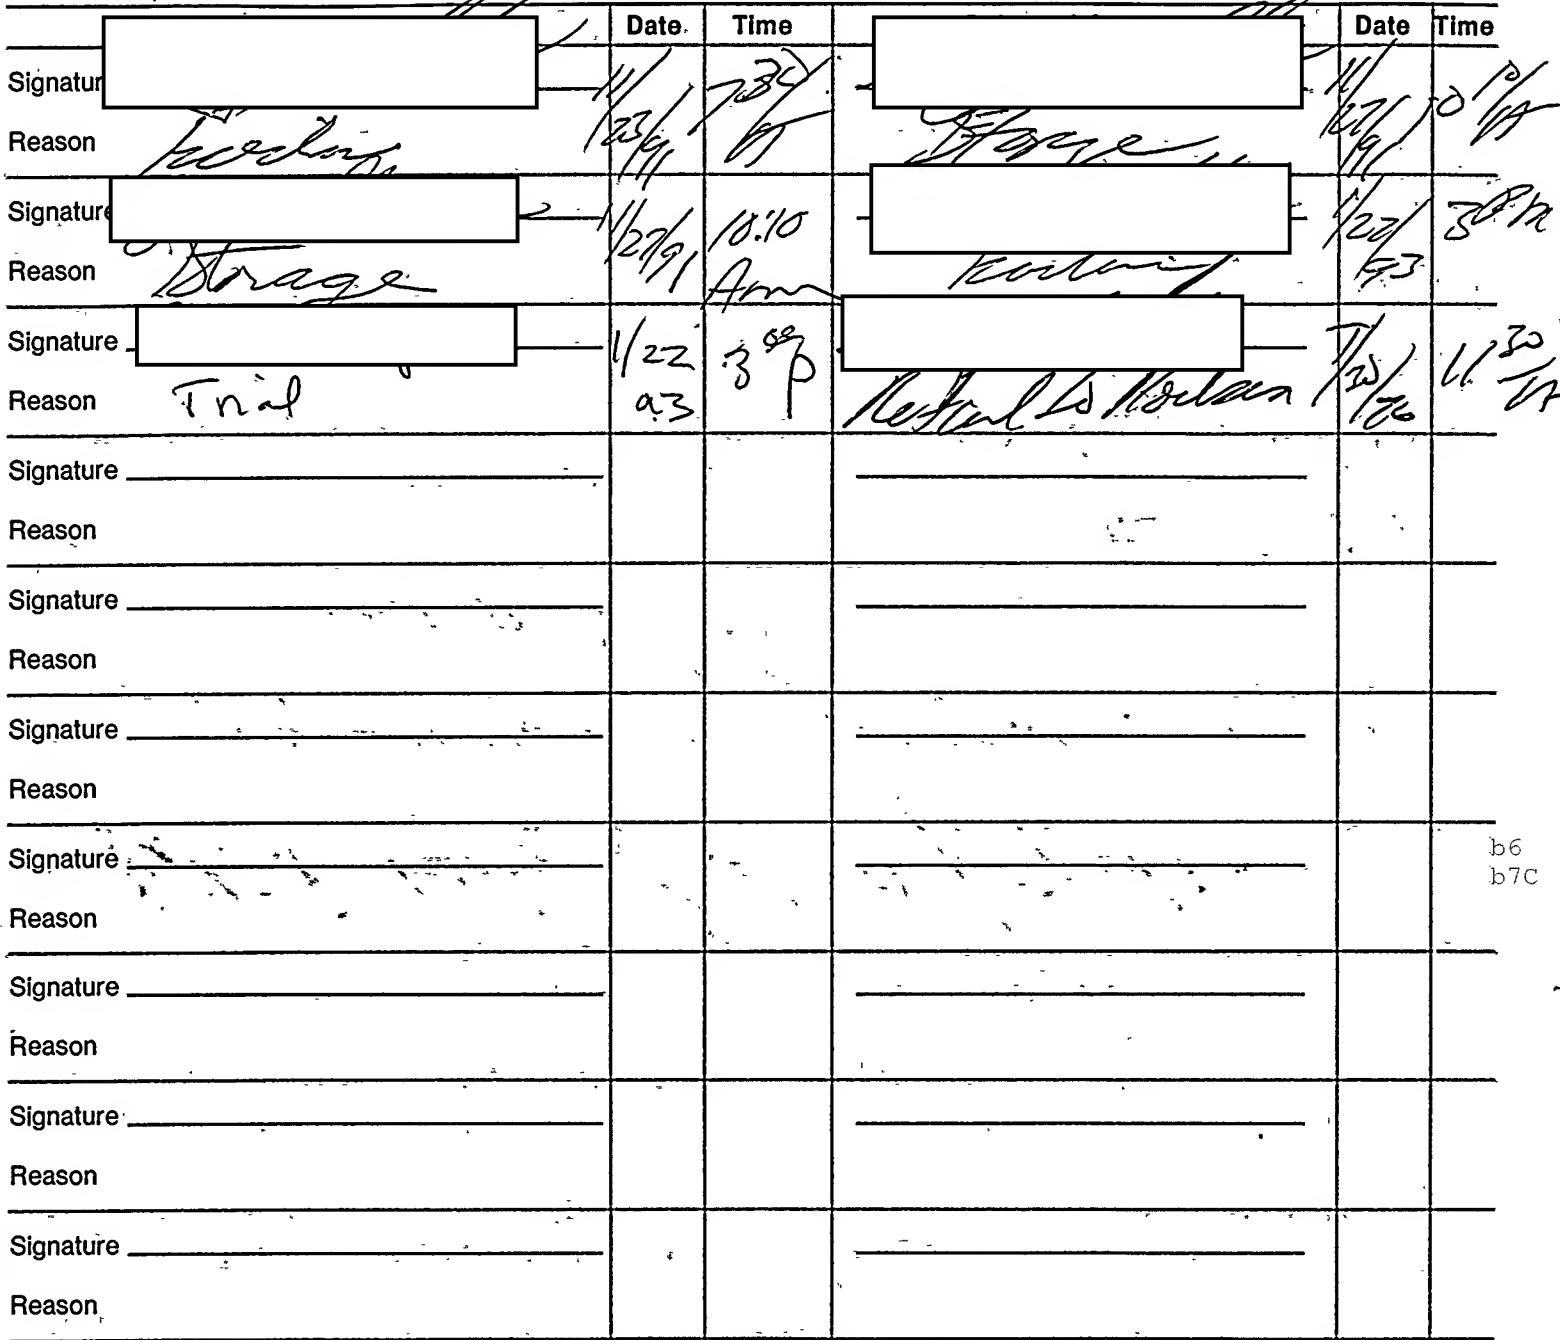 Date Time Date Time
Signatur 11/23/91 7:30/A 11/27/91
Reason Storage
Signature 11/27/91 10:10 Am 1/22/93 3 PM
Reason Storage
Signature 1/22 93 3 00 p 11 30/A
Reason Trial
Signature
Reason
Signature
Reason
Signature
Reason
Signature
Reason
b6
b7C
Signature
Reason
Signature
Reason
Signature
Reason